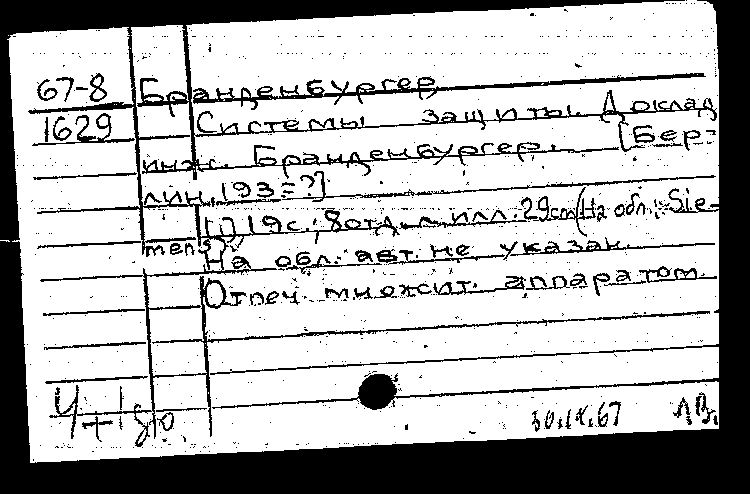 67-8 Бранденбургер
1629 Системы защиты. Доклад
инж. Бранденбургер. [Бер-
лин, 193=?]
[1] 19с.; 8отд.л.илл. 29cm (На обл.: Sie-
mens).
На обл. авт. не указан.
Отпеч. множит. аппаратом.
30.IX.67